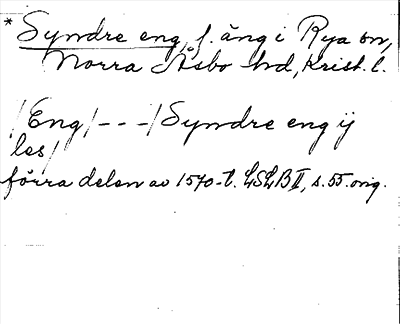 * Syndre eng, f. äng i Rya sn,
Norra Åsbo hd, Krist. l.
/Eng/---/Syndre eng ij
les/
förra delen av 1570-t. LSLB II, s. 55. orig.